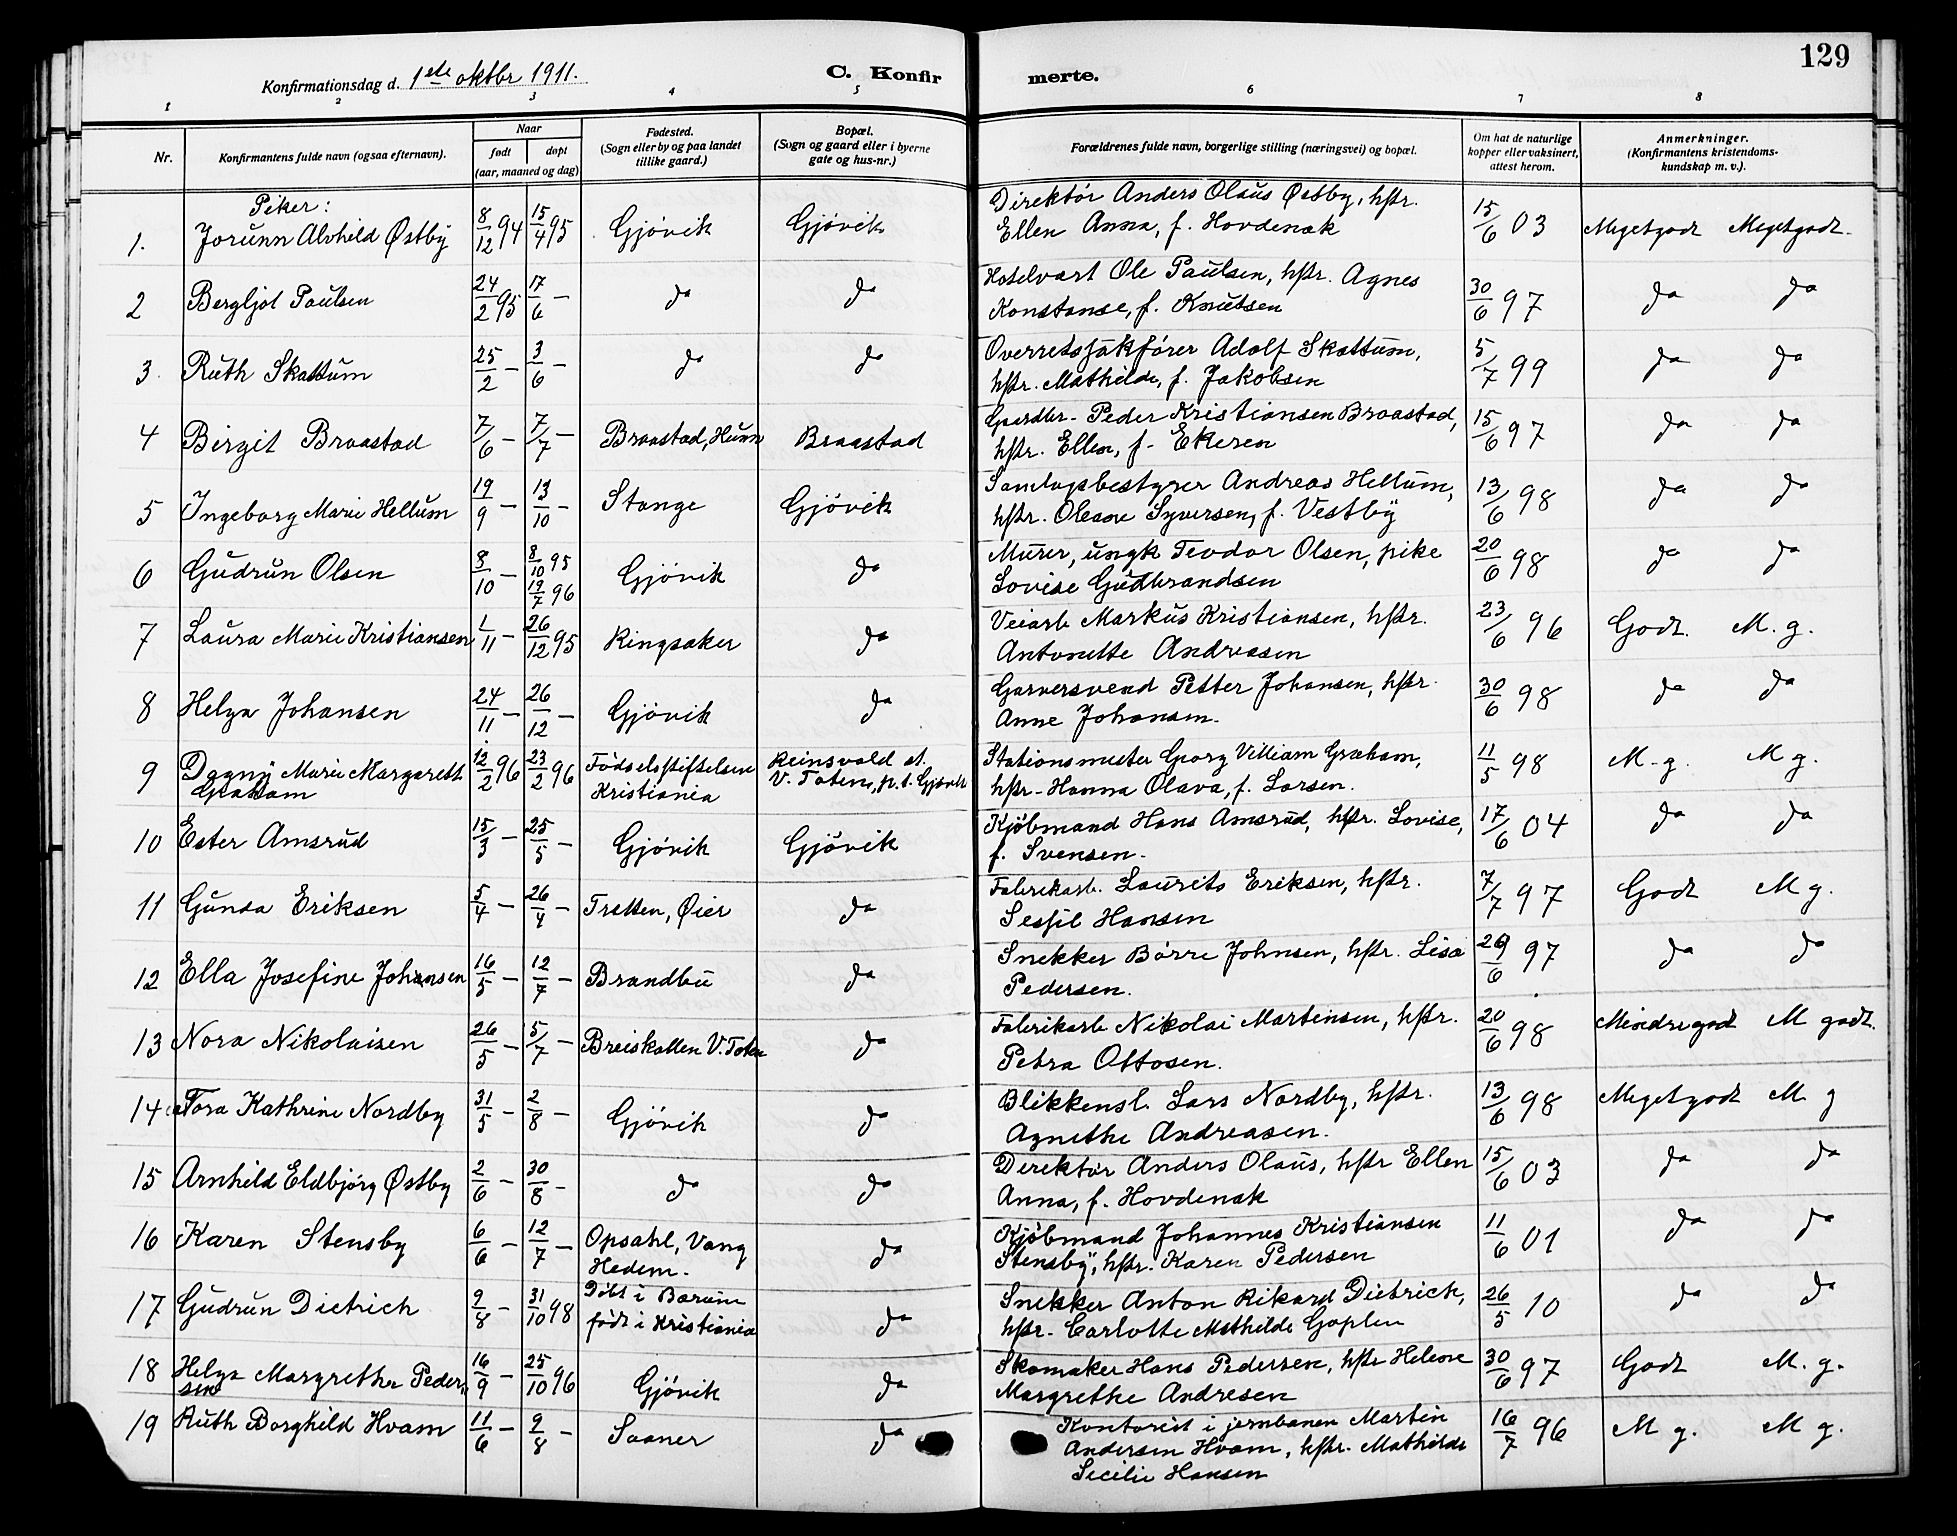 129
Konfirmationsdag d. 1ste oktbr 1911.
C. Konfirmerte.
1 2 3 4 5 6 7 8
Nr.
Konfirmantens fulde navn (ogsaa efternavn).
Naar
født døpt
(aar, maaned og dag)
Fødested.
(Sogn eller by og paa landet
tillike gaard.)
Bopæl.
(Sogn og gaard eller i byerne
gate og hus-nr.)
Forældrenes fulde navn, borgerlige stilling (næringsvei) og bopæl.
Om hat de naturlige
kopper eller vaksinert,
attest herom.
Anmerkninger.
(Konfirmantens kristendoms-
kundskap m. v.).
Piker:
1. Jorunn Alvhild Østby 8/12 94 15/4 95 Gjøvik Gjøvik Direktør Anders Olaus Østby, hstr.
Ellen Anna, f. Hovdenak 15/6 03 Megetgodt Megetgodt
2 Bergljot Paulsen 24/2 95 17/6 – do do Hotelvært Ole Paulsen, hstr. Agnes
Konstanse, f. Knutsen 30/6 97 do do
3. Ruth Skattum 25/2 – 3/6 – do do Overretssakfører Adolf Skattum,
hstr. Mathilde, f. Jakobsen 5/7 99 do do
4 Birgit Braastad 7/6 – 7/7 – Braastad, Hunn Braastad Gaardbr. Peder Kristiansen Braastad,
hstr. Ellen, f. Ekeren 15/6 97 do do
5 Ingeborg Marie Hellum 19/9 – 13/10 – Stange Gjøvik Samlagsbestyrer Andreas Hellum,
hstr. Oleane Syversen, f. Vestby 13/6 98 do do
6 Gudrun Olsen 8/10 – 8/10 95 19/7 96 Gjøvik do Murer, ungk Teodor Olsen, pike
Lovise Gudbrandsen 20/6 98 do do
7 Laura Marie Kristiansen 1/11 – 26/12 95 Ringsaker do Veiarb Markus Kristiansen, hstr.
Antonette Andreasen 23/6 96 Godt. M. g.
8 Helga Johansen 24/11 – 26/12 – Gjøvik do Garversvend Petter Johansen, hstr.
Anne Johansen. 30/6 98 do do
9 Dagny Marie Margarett
Graham 12/2 96 23/2 96 Fødselsstiftelsen
Kristiania Reinsvold st.
V. Toten, p. t. Gjøvik Stationsmester Georg Villiam Graham,
hstr. Hanna Olava, f. Larsen. 11/5 98 M. g. M g.
10 Ester Amsrud 15/3 – 25/5 – Gjøvik Gjøvik Kjøbmand Hans Amsrud, hstr. Lovise,
f. Svensen. 17/6 04 do do
11 Gunda Eriksen 5/4 – 26/4 – Tretten, Øier do Fabrikarb. Laurits Eriksen, hstr.
Sessil Hansen 7/7 97 Godt M g.
12 Ella Josefine Johansen 16/5 – 12/7 – Brandbu do Snekker Børre Johnsen, hstr. Lisa
Pedersen. 29/6 97 do do
13 Nora Nikolaisen 26/5 – 5/7 – Breiskallen V. Toten do Fabrikarb Nikolai Martinsen, hstr.
Petra Ottosen. 20/6 98 Mindregodt M godt.
14 Tora Kathrine Nordby 31/5 – 2/8 – Gjøvik do Blikkensl. Lars Nordby, hstr.
Agnethe Andreasen. 13/6 98 Megetgodt M. g
15 Arnhild Eldbjørg Østby 2/6 – 30/8 – do do Direktør Anders Olaus, hstr Ellen
Anna, f. Hovdenak 15/6 03 do do
16 Karen Stensby 6/6 – 12/7 – Opsahl, Vang
Hedem. do Kjøbmand Johannes Kristiansen
Stensby, hstr. Karen Pedersen 11/6 01 do do
17 Gudrun Dietrich 9/8 – 31/10 98 Døbt i Bærum
født i Kristiania do Snekker Anton Rikard Dietrich,
hstr. Carlotte Mathilde Goplen 26/5 10 do do
18 Helga Margrethe Peder-
sen 16/9 – 25/10 96 Gjøvik do Skomaker Hans Pedersen, hstr Helene
Margrethe Andresen 30/6 97 Godt M. g.
19 Ruth Borghild Hvam 11/6 – 9/8 – Saaner do Kontorist i jernbanen Martin
Andersen Hvam, hstr. Mathilde
Secilie Hansen 16/7 96 M g. M g.